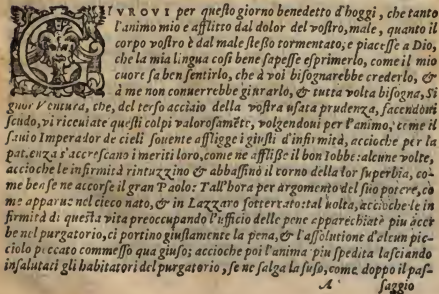 GIVROVI per questo giorno benedetto d'hoggi, che tanto
l'animo mio e afflitto dal dolor del vostro, male, quanto il
corpo vostro è dal male stesso tormentato; e piacesse a Dio,
che la mia lingua così bene sapesse esprimerlo, come il mio
cuore sa ben sentirlo, che à voi bisognarebbe crederlo, &
à me non conuerrebbe giurarlo, & tutta volta bisogna, Si
gnor Ventura, che, del terso acciaio della vostra usata prudenza, facendoui
scudo, vi riceuiate questi colpi valorosamēte, volgendoui per l'animo, come il
sauio Imperador de cieli souente affligge i giusti d'infirmità, accioche per la
patienza s'accrescano i meriti loro, come ne afflise il bon Iobbe: alcune volte,
accioche le infirmità rintuzzino & abbassino il corno della lor superbia, co-
me bense ne accorse il gran Paolo: Tall'hora per argomento del suo potere, co
me apparue nel cieco nato, & in Lazzaro sotterrato: tal uolta, accioche le in
firmità di questa vita preoccupando l'ufficio delle pene apparechiate piu acer
be nel purgatorio, ci portino giustamente la pena, & l'assolutione d'alcun pic-
ciolo peccato commesso qua giuso; accioche poi l'anima piu spedita lasciando
insalutati gli habitatori del purgatorio, se ne salga la suso, come, doppo il pas-
A saggio